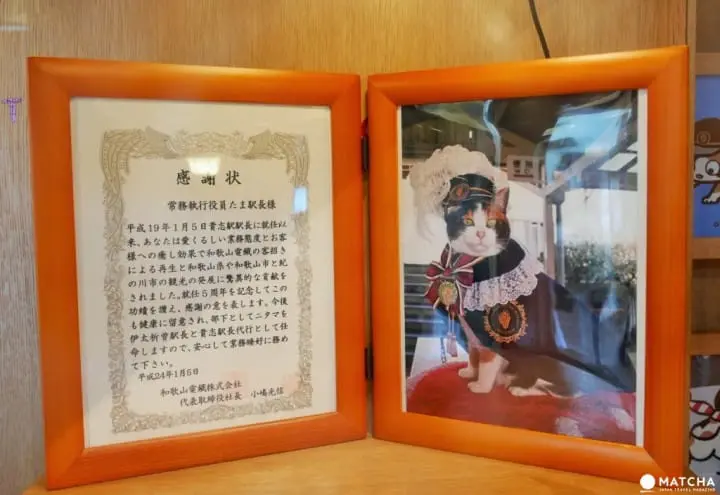 感謝状
常務執行役員たま駅長様
平成19年1月5日貴志駅駅長に就任以
来、あなたは愛くるしい業務態度とお客
様への癒し効果で和歌山電鐵の客招き
による再生と和歌山県や和歌山市と紀
の川市の観光の発展に驚異的な貢献を
されました。就任5周年を記念してこの
功績を讃え、感謝の意を表します。今後
も健康に留意され、部下としてニタマを
伊太祈曽駅長と貴志駅長代行として任
命しますので、安心して業務睡好に務め
て下さい。
平成24年1月5日
和歌山電鐵株式会社
代表取締役社長 小嶋光信
MATCHA
JAPAN TRAVEL MAGAZINE